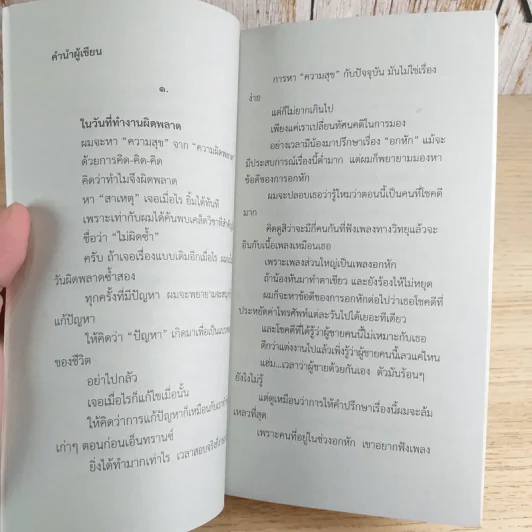 คำนำผู้เขียน
๑.
ในวันที่ทำงานผิดพลาด
ผมจะหา "ความสุข" จาก "ความผิดพลาด"
ด้วยการคิด-คิด-คิด
คิดว่าทำไมจึงผิดพลาด
หา "สาเหตุ" เจอเมื่อไร ยิ้มได้ทันที
เพราะเท่ากับผมได้ค้นพบเคล็ดวิชาที่สำคัญ
ชื่อว่า "ไม่ผิดซ้ำ"
ครับ ถ้าเจอเรื่องแบบเดิมอีกเมื่อไร
วันผิดพลาดซ้ำสอง
ทุกครั้งที่มีปัญหา ผมจะพยายามจะสนุก
แก้ปัญหา
ให้คิดว่า "ปัญหา" เกิดมาเพื่อเป็น
ของชีวิต
อย่าไปกลัว
เจอเมื่อไรก็แก้ไขเมื่อนั้น
ให้คิดว่าการแก้ปัญหาก็เหมือนกับ
เก่าๆ ตอนก่อนเอ็นทรานซ์
ยิ่งได้ทำมากเท่าไร เวลาสอบจริงก็
การหา "ความสุข" กับปัจจุบัน มันไม่ใช่เรื่อง
ง่าย
แต่ก็ไม่ยากเกินไป
เพียงแค่เราเปลี่ยนทัศนคติในการมอง
อย่างเวลามีน้องมาปรึกษาเรื่อง "อกหัก" แม้จะ
มีประสบการณ์เรื่องนี้ต่ำมาก แต่ผมก็พยายามมองหา
ข้อดีของการอกหัก
ผมจะปลอบเธอว่ารู้ไหมว่าตอนนี้เป็นคนที่โชคดี
มาก
คิดดูสิว่าจะมีกี่คนกันที่ฟังเพลงทางวิทยุแล้วจะ
อินกับเนื้อเพลงเหมือนเธอ
เพราะเพลงส่วนใหญ่เป็นเพลงอกหัก
ถ้าน้องหันมาทำตาเขียว และยังร้องไห้ไม่หยุด
ผมก็จะหาข้อดีของการอกหักต่อไปว่าเธอโชคดีที่
ประหยัดค่าโทรศัพท์แต่ละวันไปได้เยอะทีเดียว
และโชคดีที่ได้รู้ว่าผู้ชายคนนี้ไม่เหมาะกับเธอ
ดีกว่าแต่งงานไปแล้วเพิ่งรู้ว่าผู้ชายคนนี้เลวแค่ไหน
แฮ่ม...เวลาว่าผู้ชายด้วยกันเอง ตัวมันร้อนๆ
ยังไงไม่รู้
แต่ดูเหมือนว่าการให้คำปรึกษาเรื่องนี้ผมจะล้ม
เหลวที่สุด
เพราะคนที่อยู่ในช่วงอกหัก เขาอยากฟังเพลง